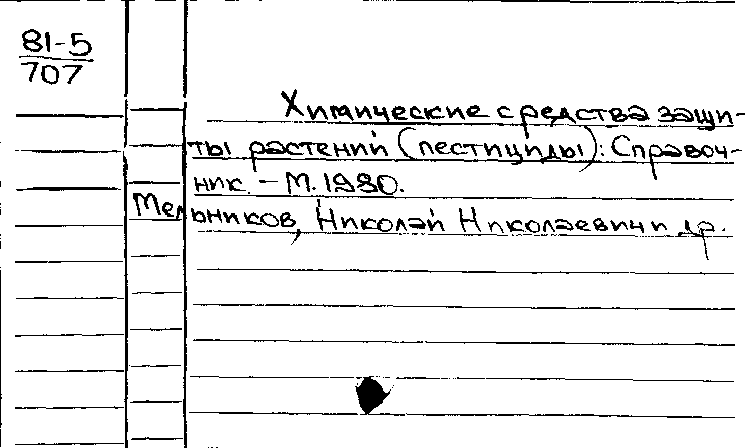 81-5
707
Химические средства защи-
ты растений (пестициды): Справоч-
ник. - М. 1980.
Мельников, Николай Николаевич и др.